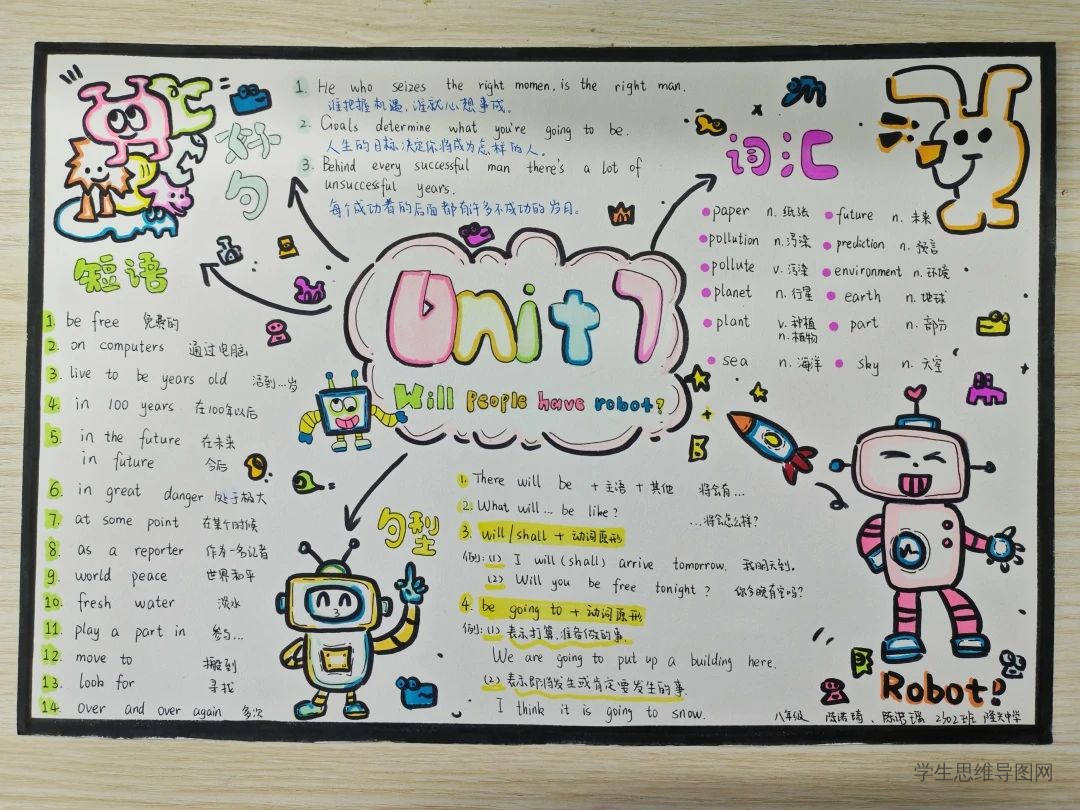 好句
1. He who seizes the right momen, is the right man.
谁把握机遇，谁就心想事成。
2. Goals determine what you're going to be.
人生的目标决定你将成为怎样的人。
3. Behind every successful man there's a lot of
unsuccessful years.
每个成功者的后面都有许多不成功的岁月。
词汇
paper n. 纸张
future n. 未来
pollution n. 污染
prediction n. 预言
pollute v. 污染
environment n. 环境
planet n. 行星
earth n. 地球
plant v. 种植
n. 植物
part n. 部分
sea n. 海洋
sky n. 天空
Unit 7
Will People have robot?
短语
1. be free 免费的
2. on computers 通过电脑
3. live to be years old 活到…岁
4. in 100 years 在100年以后
5. in the future 在未来
in future 今后
6. in great danger 处于极大
7. at some point 在某个时候
8. as a reporter 作为一名记者
9. world peace 世界和平
10. fresh water 淡水
11. play a part in 参与…
12. move to 搬到
13. look for 寻找
14. over and over again 多次
句型
1. There will be + 主语 + 其他 将会有…
2. What will … be like? …将会怎么样?
3. will/shall + 动词原形
例: (1) I will (shall) arrive tomorrow. 我明天到。
(2) Will you be free tonight? 你今晚有空吗?
4. be going to + 动词原形
例: (1) 表示打算、准备做的事.
We are going to put up a building here.
(2) 表示即将发生或肯定要发生的事.
I think it is going to snow.
Robot?
八年级 陈 、陈 2302班 隆 中学
学生思维导图网